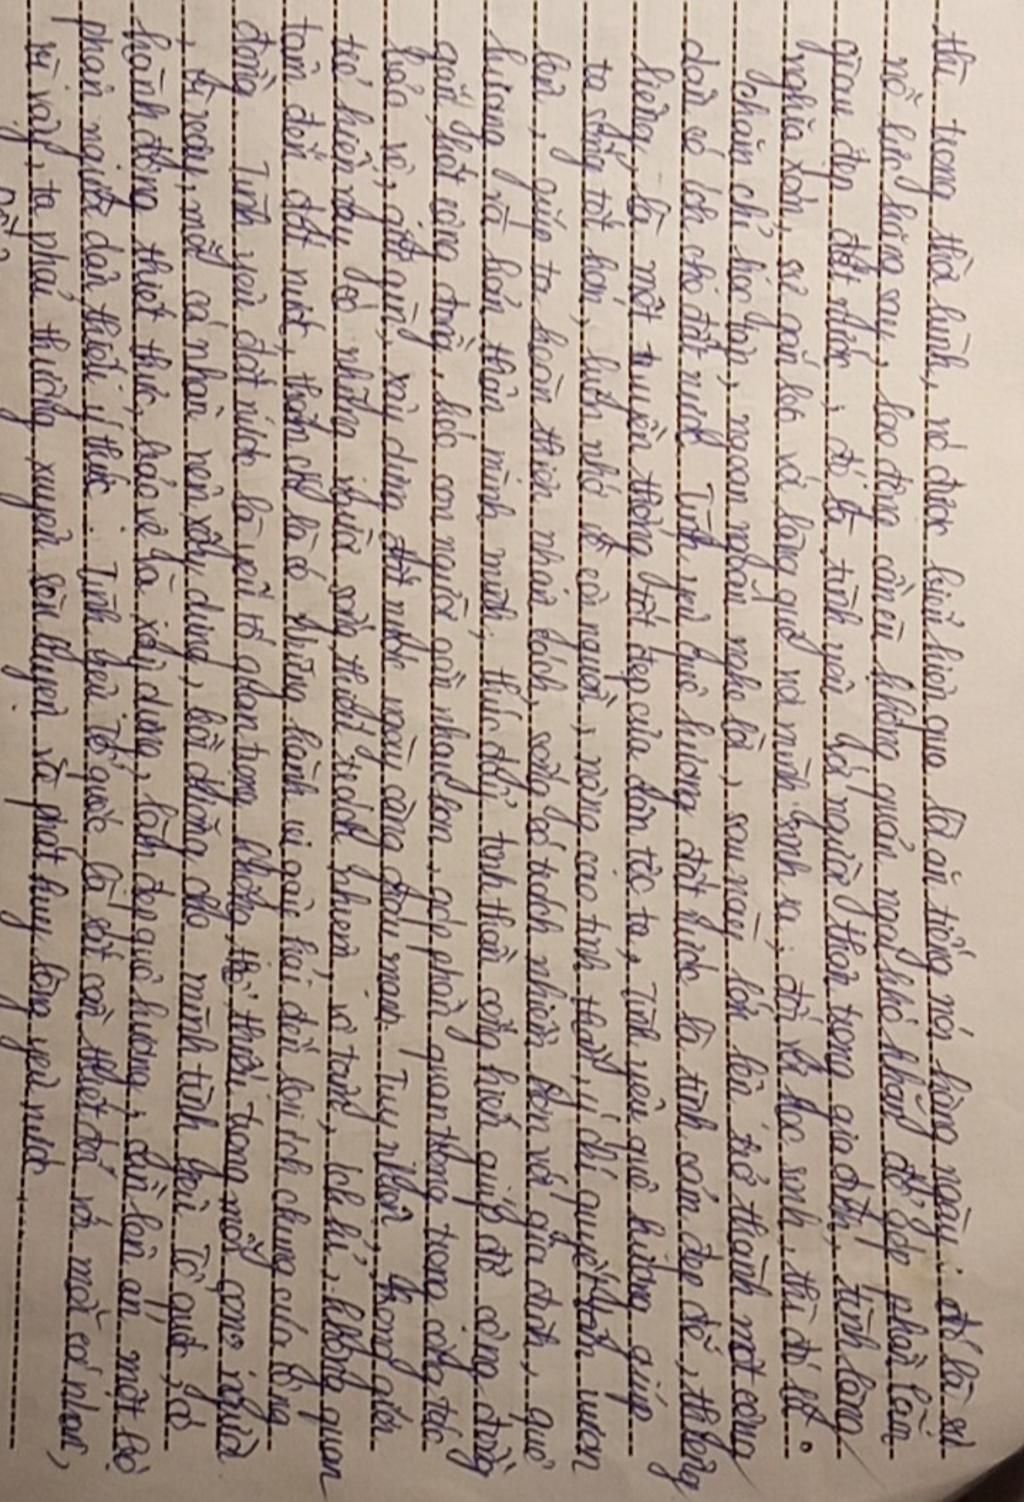 thù trong thời bình, nó được biểu hiện qua lời ăn tiếng nói hằng ngày; đó là sự
nỗ lực hăng say, lao động cần cù không quản ngại khó khăn để góp phần làm
giàu đẹp đất nước; đó là tình yêu với người thân trong gia đình, tình làng
nghĩa xóm, sự gắn bó với làng quê nơi mình sinh ra; đối với học sinh, thì đó là
chăm chỉ học tập, ngoan ngoãn nghe lời, sau này lớn lên trở thành một công
dân có ích cho đất nước. Tình yêu quê hương đất nước là tình cảm đẹp đẽ, thiêng
liêng, là một truyền thống tốt đẹp của dân tộc ta, Tình yêu quê hương giúp
ta sống tốt hơn, luôn nhớ về cội nguồn, nâng cao tinh thần, ý chí quyết tâm vươn
lên, giúp ta hoàn thiện nhân cách, sống có trách nhiệm hơn với gia đình, quê
hương và bản thân mình mình; thúc đẩy tinh thần cống hiến giúp đỡ cộng đồng
gắn kết cộng đồng, kéo con người gần nhau hơn, góp phần quan trọng trong công tác
bảo vệ, giữ gìn, xây dựng đất nước ngày càng giàu mạnh. Tuy nhiên, trong giới
trẻ hiện nay có những người sống thiếu trách nhiệm, vô tâm, ích kỉ, không quan
tâm đến đất nước, thậm chí là có những hành vi gây hại đến lợi ích chung của cộng
đồng. Tình yêu đất nước là yếu tố quan trọng không thể thiếu trong mỗi con người
Vì vậy, mỗi cá nhân nên xây dựng, bồi dưỡng cho mình tình yêu Tổ quốc, có
hành động thiết thực, bảo vệ và xây dựng, làm đẹp quê hương, cần lên án một bộ
phận người dân thiếu ý thức. Tình yêu Tổ quốc là rất cần thiết đối với mỗi cá nhân,
vì vậy, ta phải thường xuyên rèn luyện và phát huy lòng yêu nước.